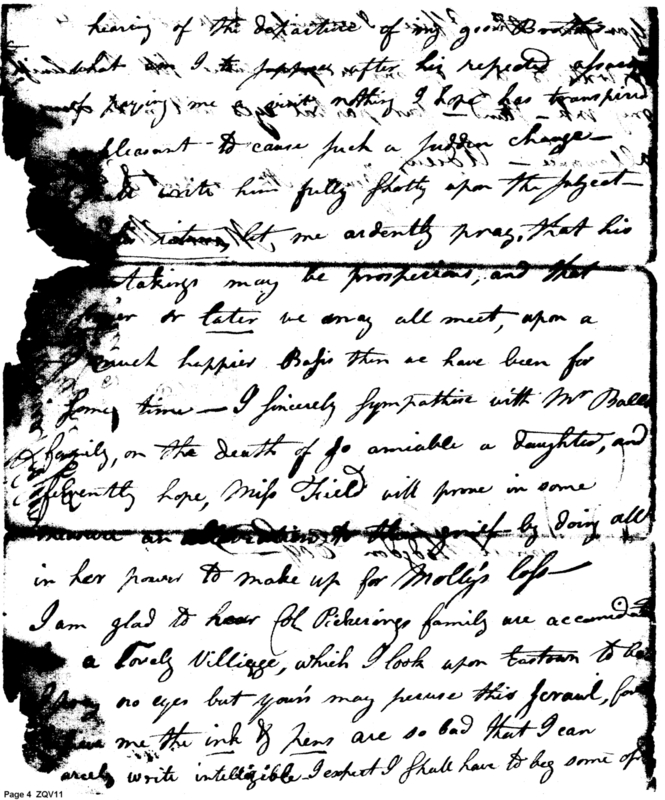 hearing of the departure of my good Brother
what am I to suppose after his repeated
paying me a visit nothing I hope has transpired
pleasant to cause such a sudden change—
write him fully shortly upon the subject—
his return, let, me ardently pray, that his
takings may be prosperious, and that
or later we may all meet, upon a
much happier Basis then we have been for
some, time — I sincerely sympathise with Mr Balls
& family, on the death of so amiable a daughter, and
fervently hope, Miss Field will prove in some
measure an alleviation to their grief by doing all
in her power to make up for Molly's loss—
I am glad to hear Col. Pickerings family are accomidat
a Lovely Villiage, which I look upon to be
no eyes but yours may peruse this scrawl, for
me the ink & pens are so bad that I can
arcely write intelligible I expect I shall have to beg some of
Page 4 ZQV11